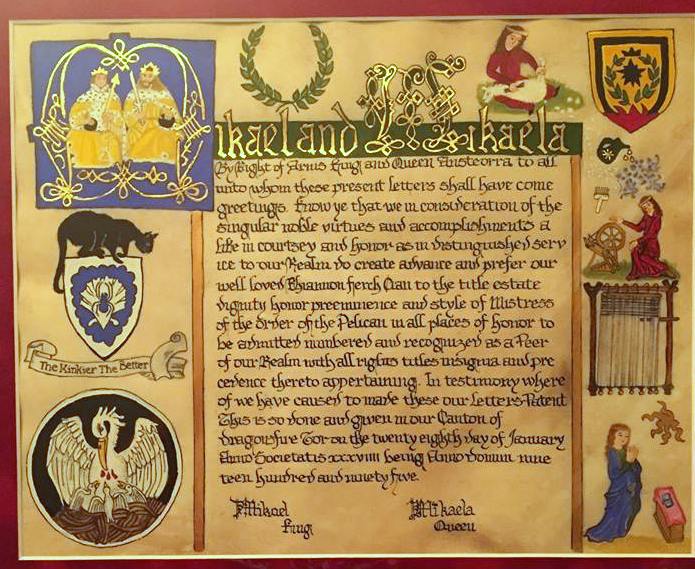 Mikael and Mikaela
By Right of Arms King and Queen Ansteorra to all
unto whom these present letters shall have come
greetings. Know ye that we in consideration of the
singular noble virtues and accomplishments a
like in courtsey and honor as in distinguished serv
ice to our Realm do create advance and prefer our
well loved Rhiannon ferch Cian to the title estate
dignity honor preeminence and style of Mistress
of the Order of the Pelican in all places of honor to
be admitted numbered and recognized as a Peer
of our Realm with all rights titles insignia and pre
cedence thereto appertaining. In testimony where
of we have caused to made these our Letters Patent
This is so done and given in our Canton of
dragonsfire Tor on the twenty eighth day of January
Anno Societatus xxxviiii being Anno domini nine
teen hundred and ninety five.
Mikael
King
Mikaela
Queen
The Kinkier The Better